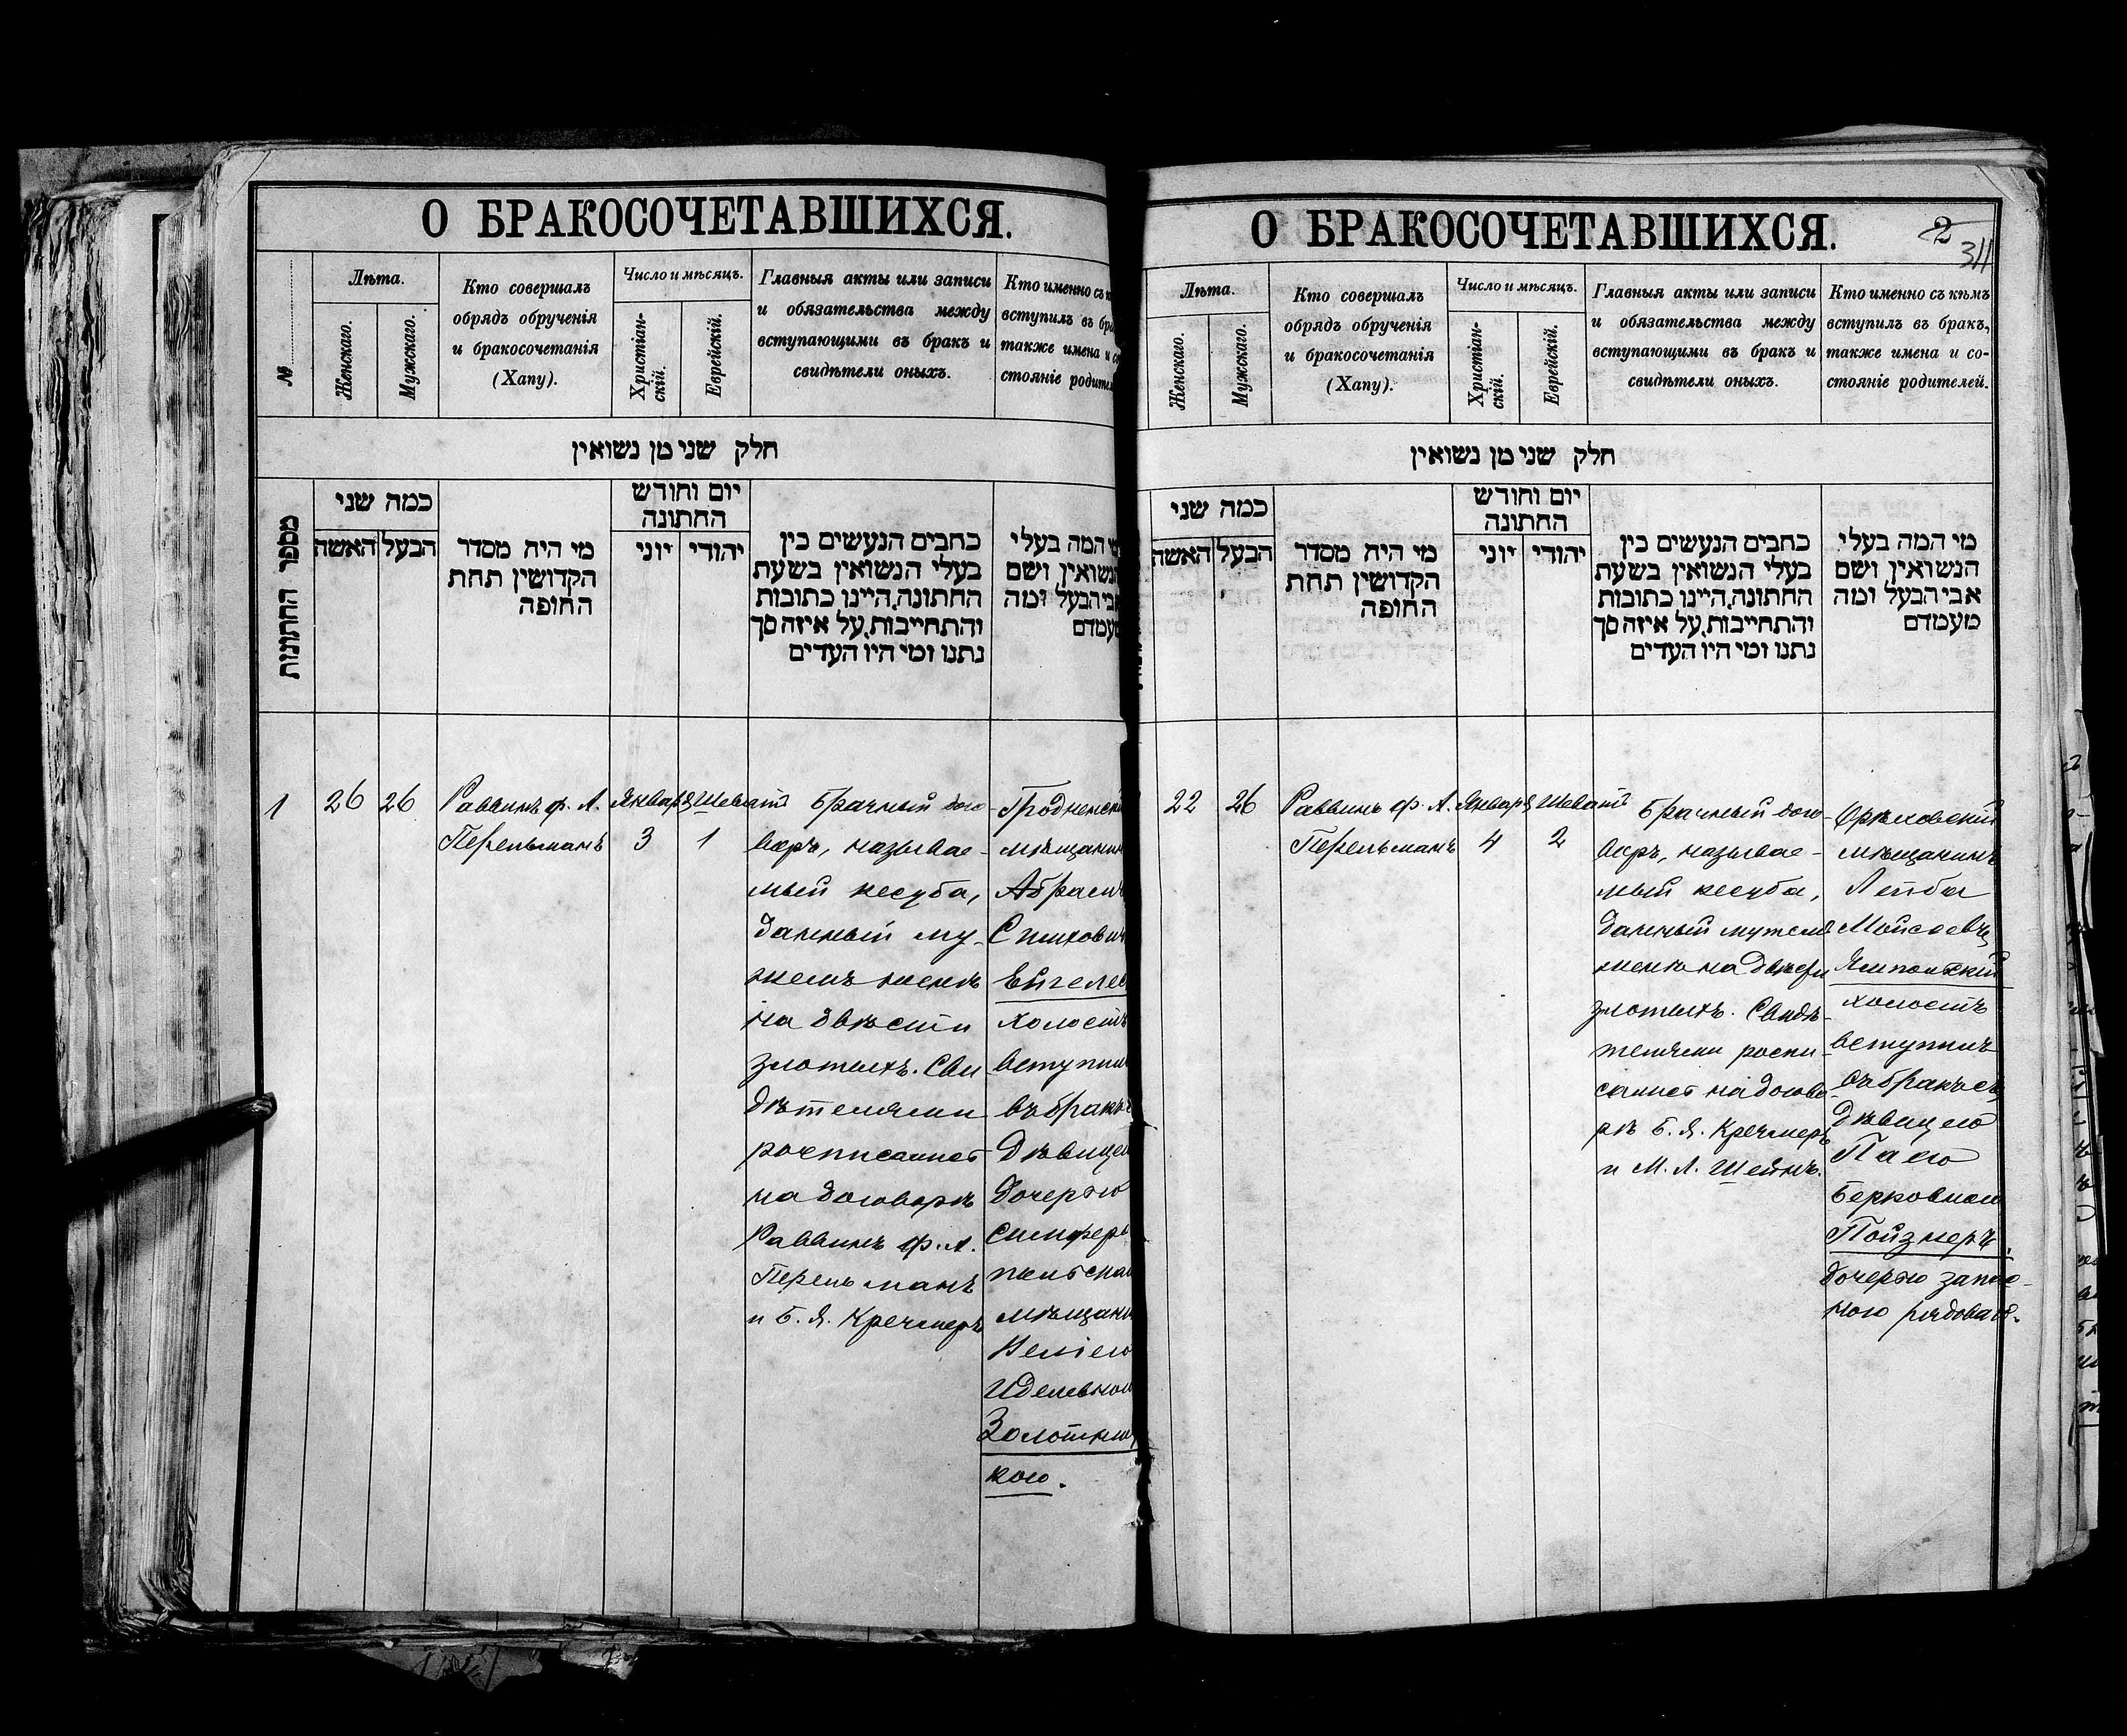 О БРАКОСОЧЕТАВШИХСЯ.
№
Лѣта.
Женскаго.
Мужскаго.
Кто совершалъ
обрядъ обрученія
и бракосочетанія
(Хапу).
Число и мѣсяцъ.
Христіан-
скій.
Еврейскій.
Главныя акты или записи
и обязательства между
вступающими въ бракъ и
свидѣтели оныхъ.
Кто именно съ
вступилъ въ
также имена и
стояніе
חלק שני מן נשואין
מספר החתונות
כמה שני
הבעל
האשה
מי היה מסדר
הקדושין תחת
החופה
יום וחודש
החתונה
יהודי
יוני
כתבים הנעשים בין
בעלי הנשואין בשעת
החתונה, היינו כתובות
והתחייבות, על איזה סך
נתנו ומי היו העדים
המה בעלי
הנשואין ושם
אבי הבעל ומה
מעמדם
1
26
26
Раввинъ Ф. А.
Перельманъ
Января
3
Шеватъ
1
Брачный дого-
воръ, называе-
мый кесуба,
данный му-
жемъ женѣ
на двѣсти
злотыхъ. Сви-
дѣтелями
росписались
на договорѣ
Раввинъ Ф. А.
Перельманъ
и Б. Я. Кречмеръ
Гродненскі
мѣщанин
Абрамъ
холостъ
вступил
въ бракъ
дѣвицею
дочерью
Симферо
польскаго
мѣщани
Иделевною
Золотниц
кою.
О БРАКОСОЧЕТАВШИХСЯ.
2
311
Лѣта.
Женскаго.
Мужскаго.
Кто совершалъ
обрядъ обрученія
и бракосочетанія
(Хапу).
Число и мѣсяцъ.
Христіан-
скій.
Еврейскій.
Главныя акты или записи
и обязательства между
вступающими въ бракъ и
свидѣтели оныхъ.
Кто именно съ кѣмъ
вступилъ въ бракъ,
также имена и со-
стояніе родителей.
חלק שני מן נשואין
כמה שני
הבעל
האשה
מי היה מסדר
הקדושין תחת
החופה
יום וחודש
החתונה
יהודי
יוני
כתבים הנעשים בין
בעלי הנשואין בשעת
החתונה, היינו כתובות
והתחייבות, על איזה סך
נתנו ומי היו העדים
מי המה בעלי
הנשואין ושם
אבי הבעל ומה
מעמדם
22
26
Раввинъ Ф. А.
Перельманъ
Января
4
Шеватъ
2
Брачный дого-
воръ, называе-
мый кесуба,
данный мужемъ
женѣ на двѣсти
злотыхъ. Свидѣ-
телями роспи-
сались на догово-
рѣ Б. Я. Кречмеръ
и М. Л. Штейнъ.
Орѣховскій
мѣщанинъ
Лейба
Мойсеевъ
Ямпольскій
холостъ
вступилъ
въ бракъ съ
дѣвицею
Паею
Берковною
Пойзнеръ,
дочерью запас-
ного рядоваго.